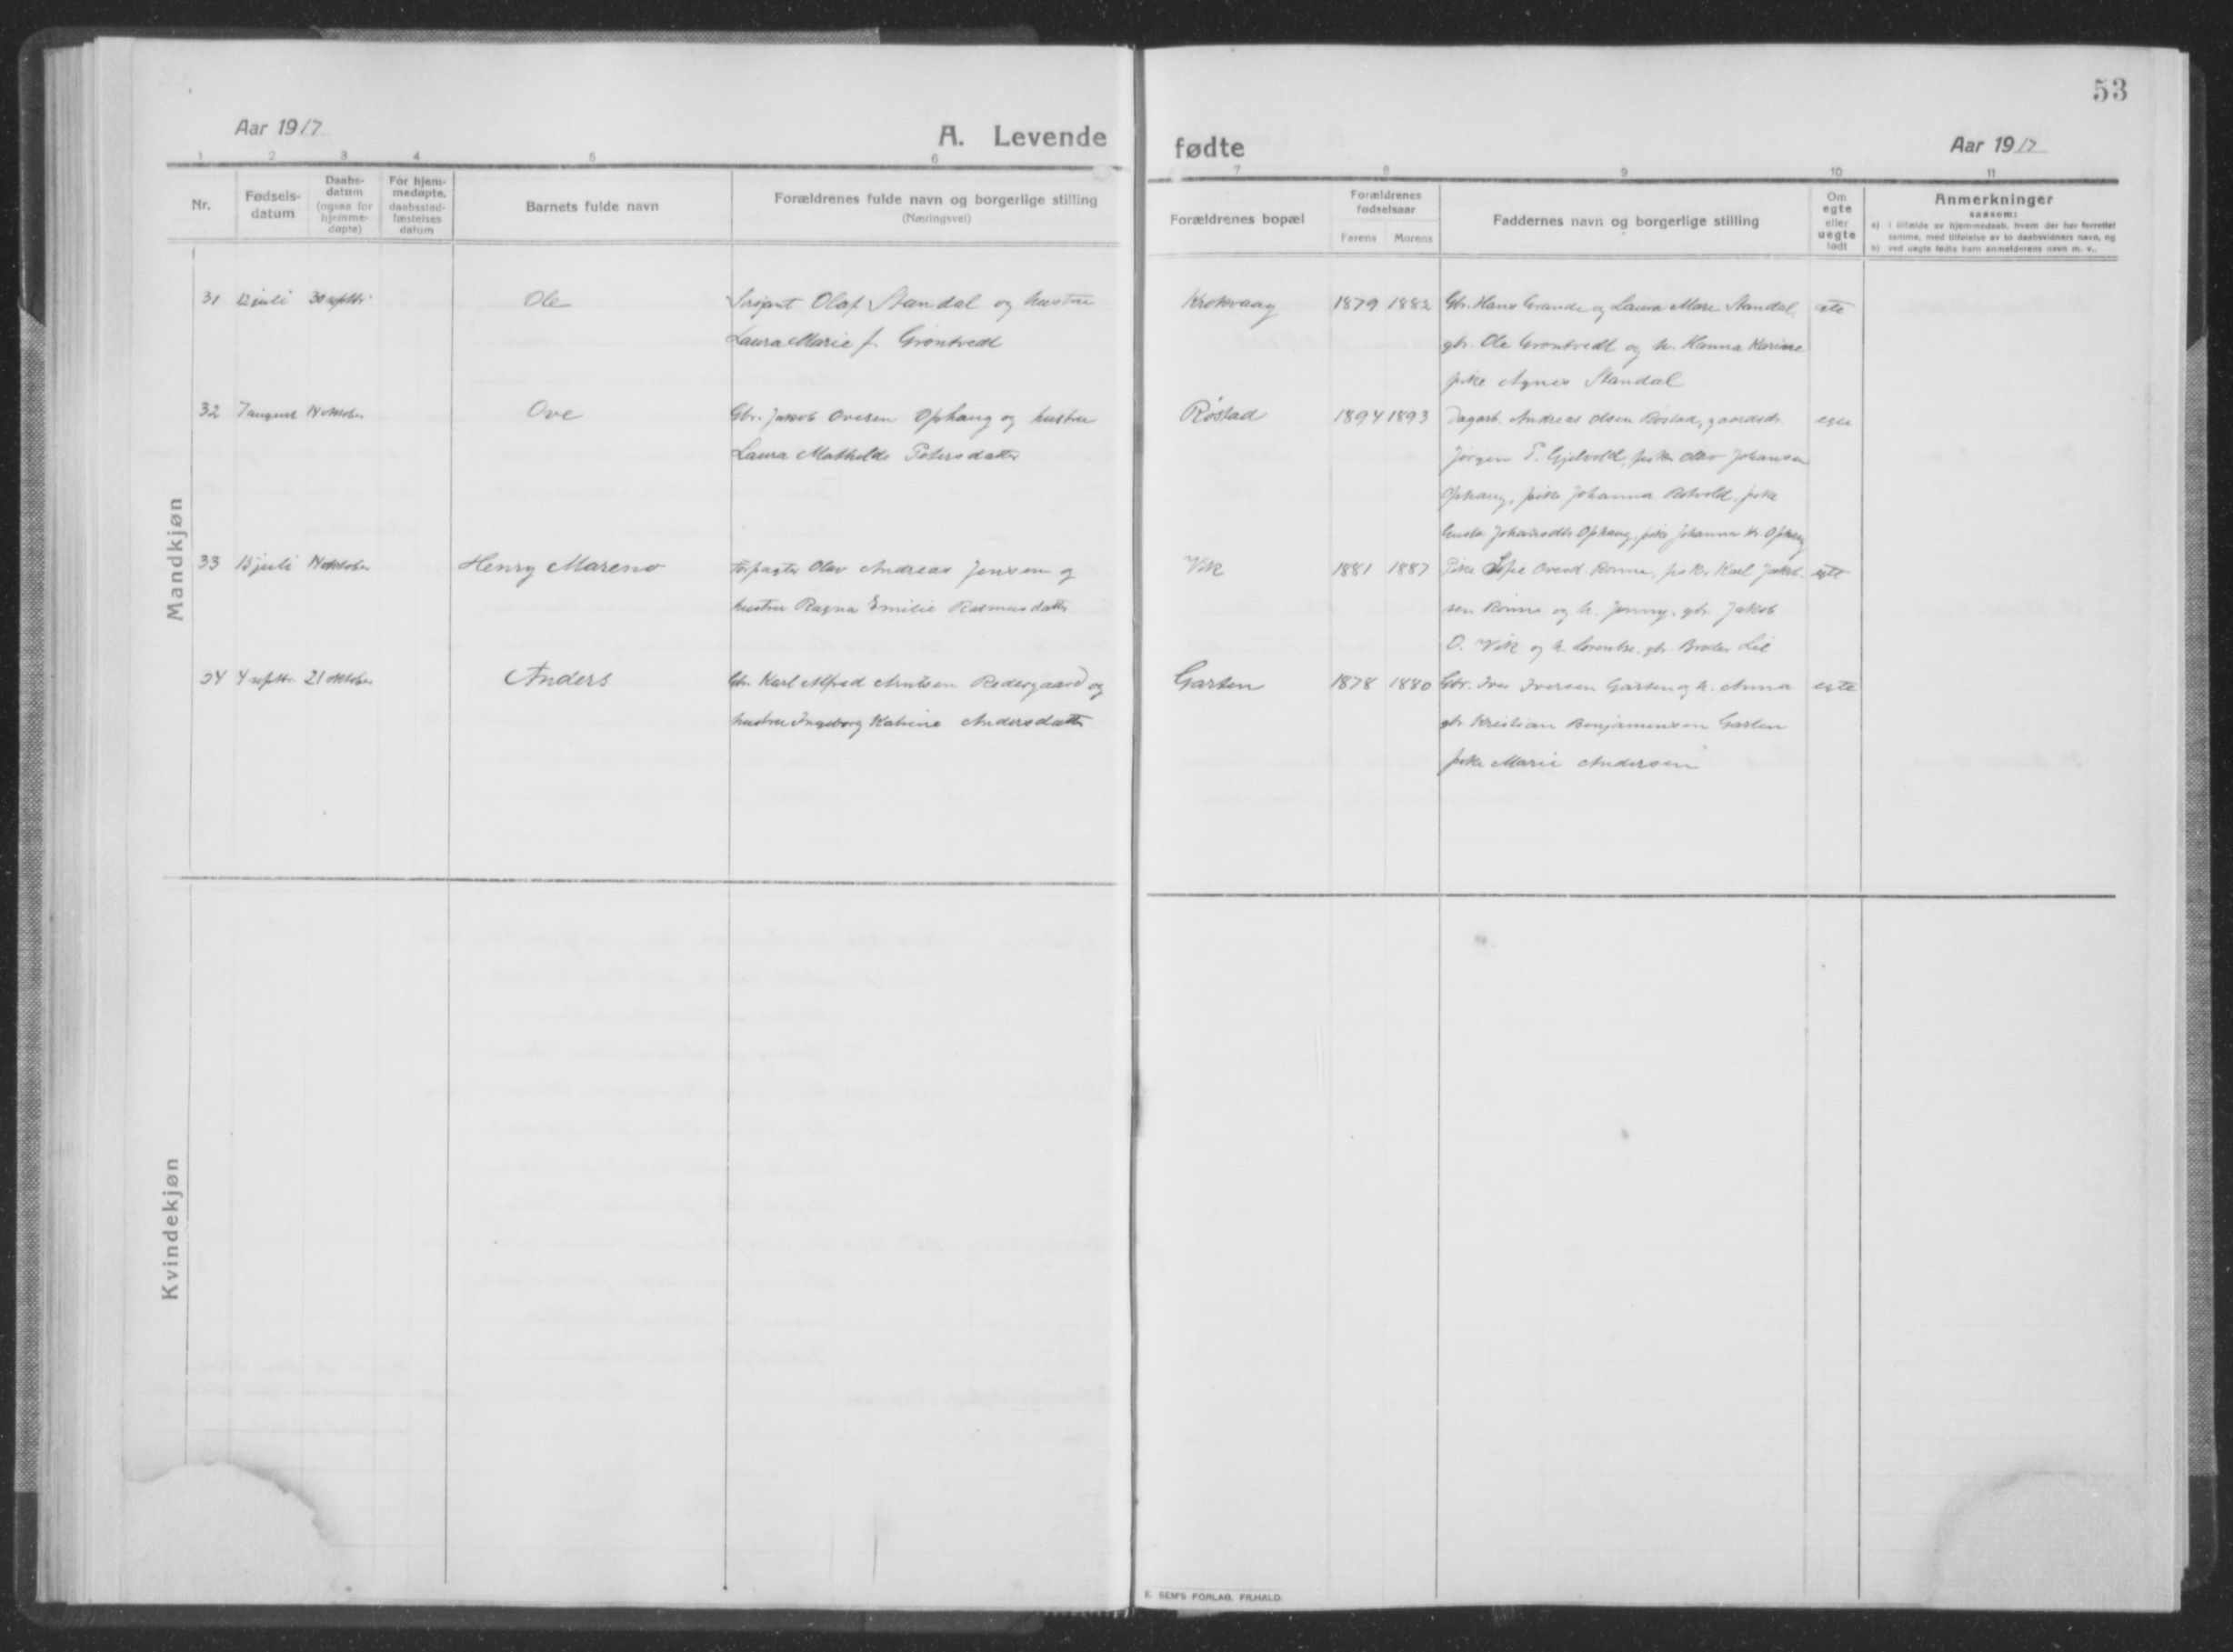 53
Aar 1917
A. Levende
fødte
Aar 1917
1 2 3 4 5 6
7 8 9 10 11
Nr.
Fødsels-
datum
Daabs-
datum
(ogsaa for
hjemme-
døpte)
For hjem-
medøpte,
daabsstad-
fæstelses
datum
Barnets fulde navn
Forældrenes fulde navn og borgerlige stilling
(Næringsvei)
Forældrenes bopæl
Forældrenes
fødselsaar
Farens Morens
Faddernes navn og borgerlige stilling
Om
egte
eller
uegte
født
Anmerkninger
saasom:
a) i tilfælde av hjemmedaab, hvem der har forrettet
samme, med tilføielse av to daabsvidners navn, og
b) ved uegte fødte barn anmelderens navn m. v..
Mandkjøn
31 12 juli 30 septbr. Ole
Serjant Olaf Standal og hustru
Laura Marie f. Grøntvedt
Krokvaag 1879 1882
Gbr. Hans Grande og Laura Mare Standal,
gbr. Ole Grøntvedt og h. Hanna Karine
pike Agnes Standal
32 7 august 14 oktober Ove
Gbr. Jakob Ovesen Ophaug og hustru
Laura Mathilde Petersdatter
Røstad 1894 1893
Dagarb. Andreas Olsen Røstad, gaardsdr.
Jørgen T. Gjelvold, Olav Johansen
Ophaug, pike Johanna pike
Johansdtr. Ophaug, pike Johanna Kr. Ophaug
egte
33 15 juli 14 oktober Henry Mareno
Forpagter Olav Andreas Jensen og
hustru Ragna Emilie Rasmusdatter
Vik 1881 1887
Pike Ovesd. Rønne, Karl Jakob-
sen Rønne og h. Jenny, gbr. Jakob
O. Vik og h. Lorentse, gbr. Lil
egte
34 4 septbr. 21 oktober Anders
Gbr. Karl Alfred Arntsen Redergaard og
hustru Ingeborg Katrine Andersdatter
Garten 1878 1880
Gbr. Iver Iversen Garten og h. Anna
gbr. Kristian Benjaminsen Garten
pike Marie Andersen
egte
Kvindekjøn
E. SEM'S FORLAG, FR.HALD.